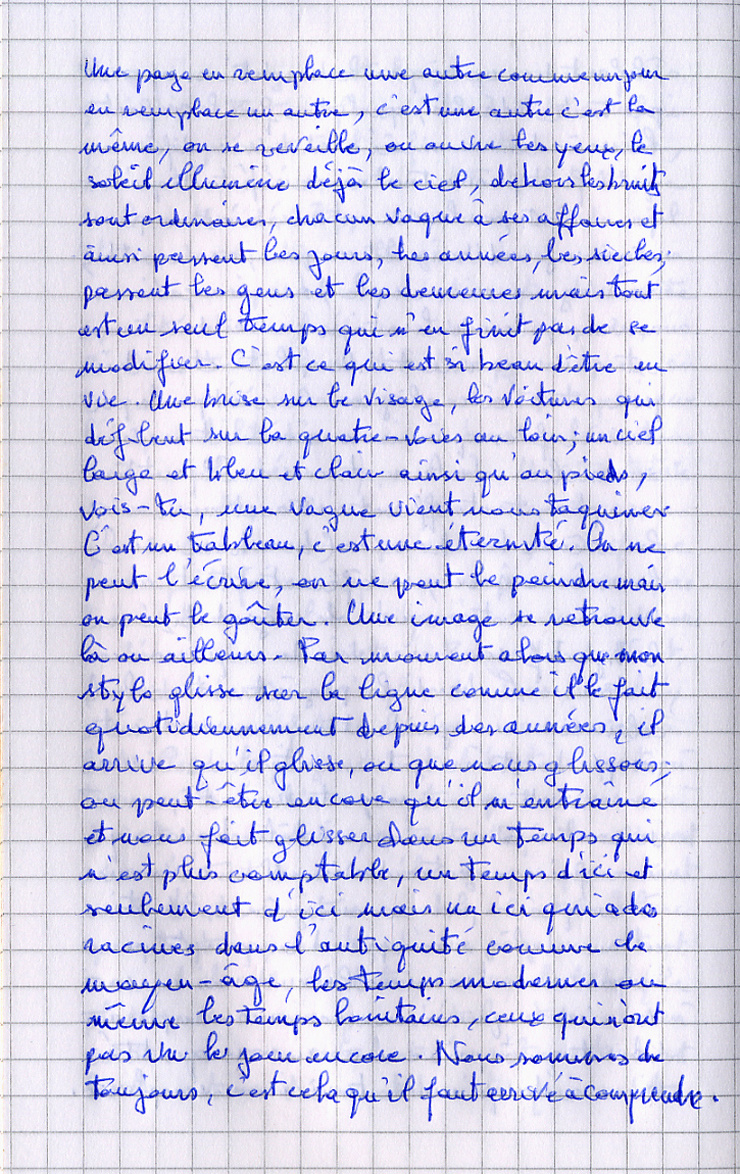 Une page en remplace une autre comme un jour
en remplace un autre, c'est une autre c'est la
même, on se reveille, on ouvre les yeux, le
soleil illumine déjà le ciel, dehors les bruits
sont ordinaires, chacun vaque à ses affaires et
ainsi passent les jours, les années, les siècles,
passent les gens et les demeures mais tout
est un seul temps qui n'en finit pas de se
modifier. C'est ce qui est si beau d'être en
vie. Une brise sur le visage, les voitures qui
défilent sur la quatre-voies au loin; un ciel
large et bleu et clair ainsi qu'au pieds,
vois-tu, une vague vient nous taquiner
C'est un tableau, c'est une éternité. On ne
peut l'écrire, on ne peut le peindre mais
on peut le goûter. Une image se retrouve
là ou ailleurs. Par moment alors que mon
stylo glisse sur la ligne comme il le fait
quotidiennement depuis des années, il
arrive qu'il glisse, ou que nous glissons;
ou peut-être encore qu'il m'entraîne
et nous fait glisser dans un temps qui
n'est plus comptable, un temps d'ici et
seulement d'ici mais un ici qui a des
racines dans l'antiquité comme le
moyen-âge, les temps modernes ou
même les temps lointains, ceux qui n'ont
pas vu le jour encore. Nous sommes de
toujours, c'est cela qu'il faut arrivé à comprendre.